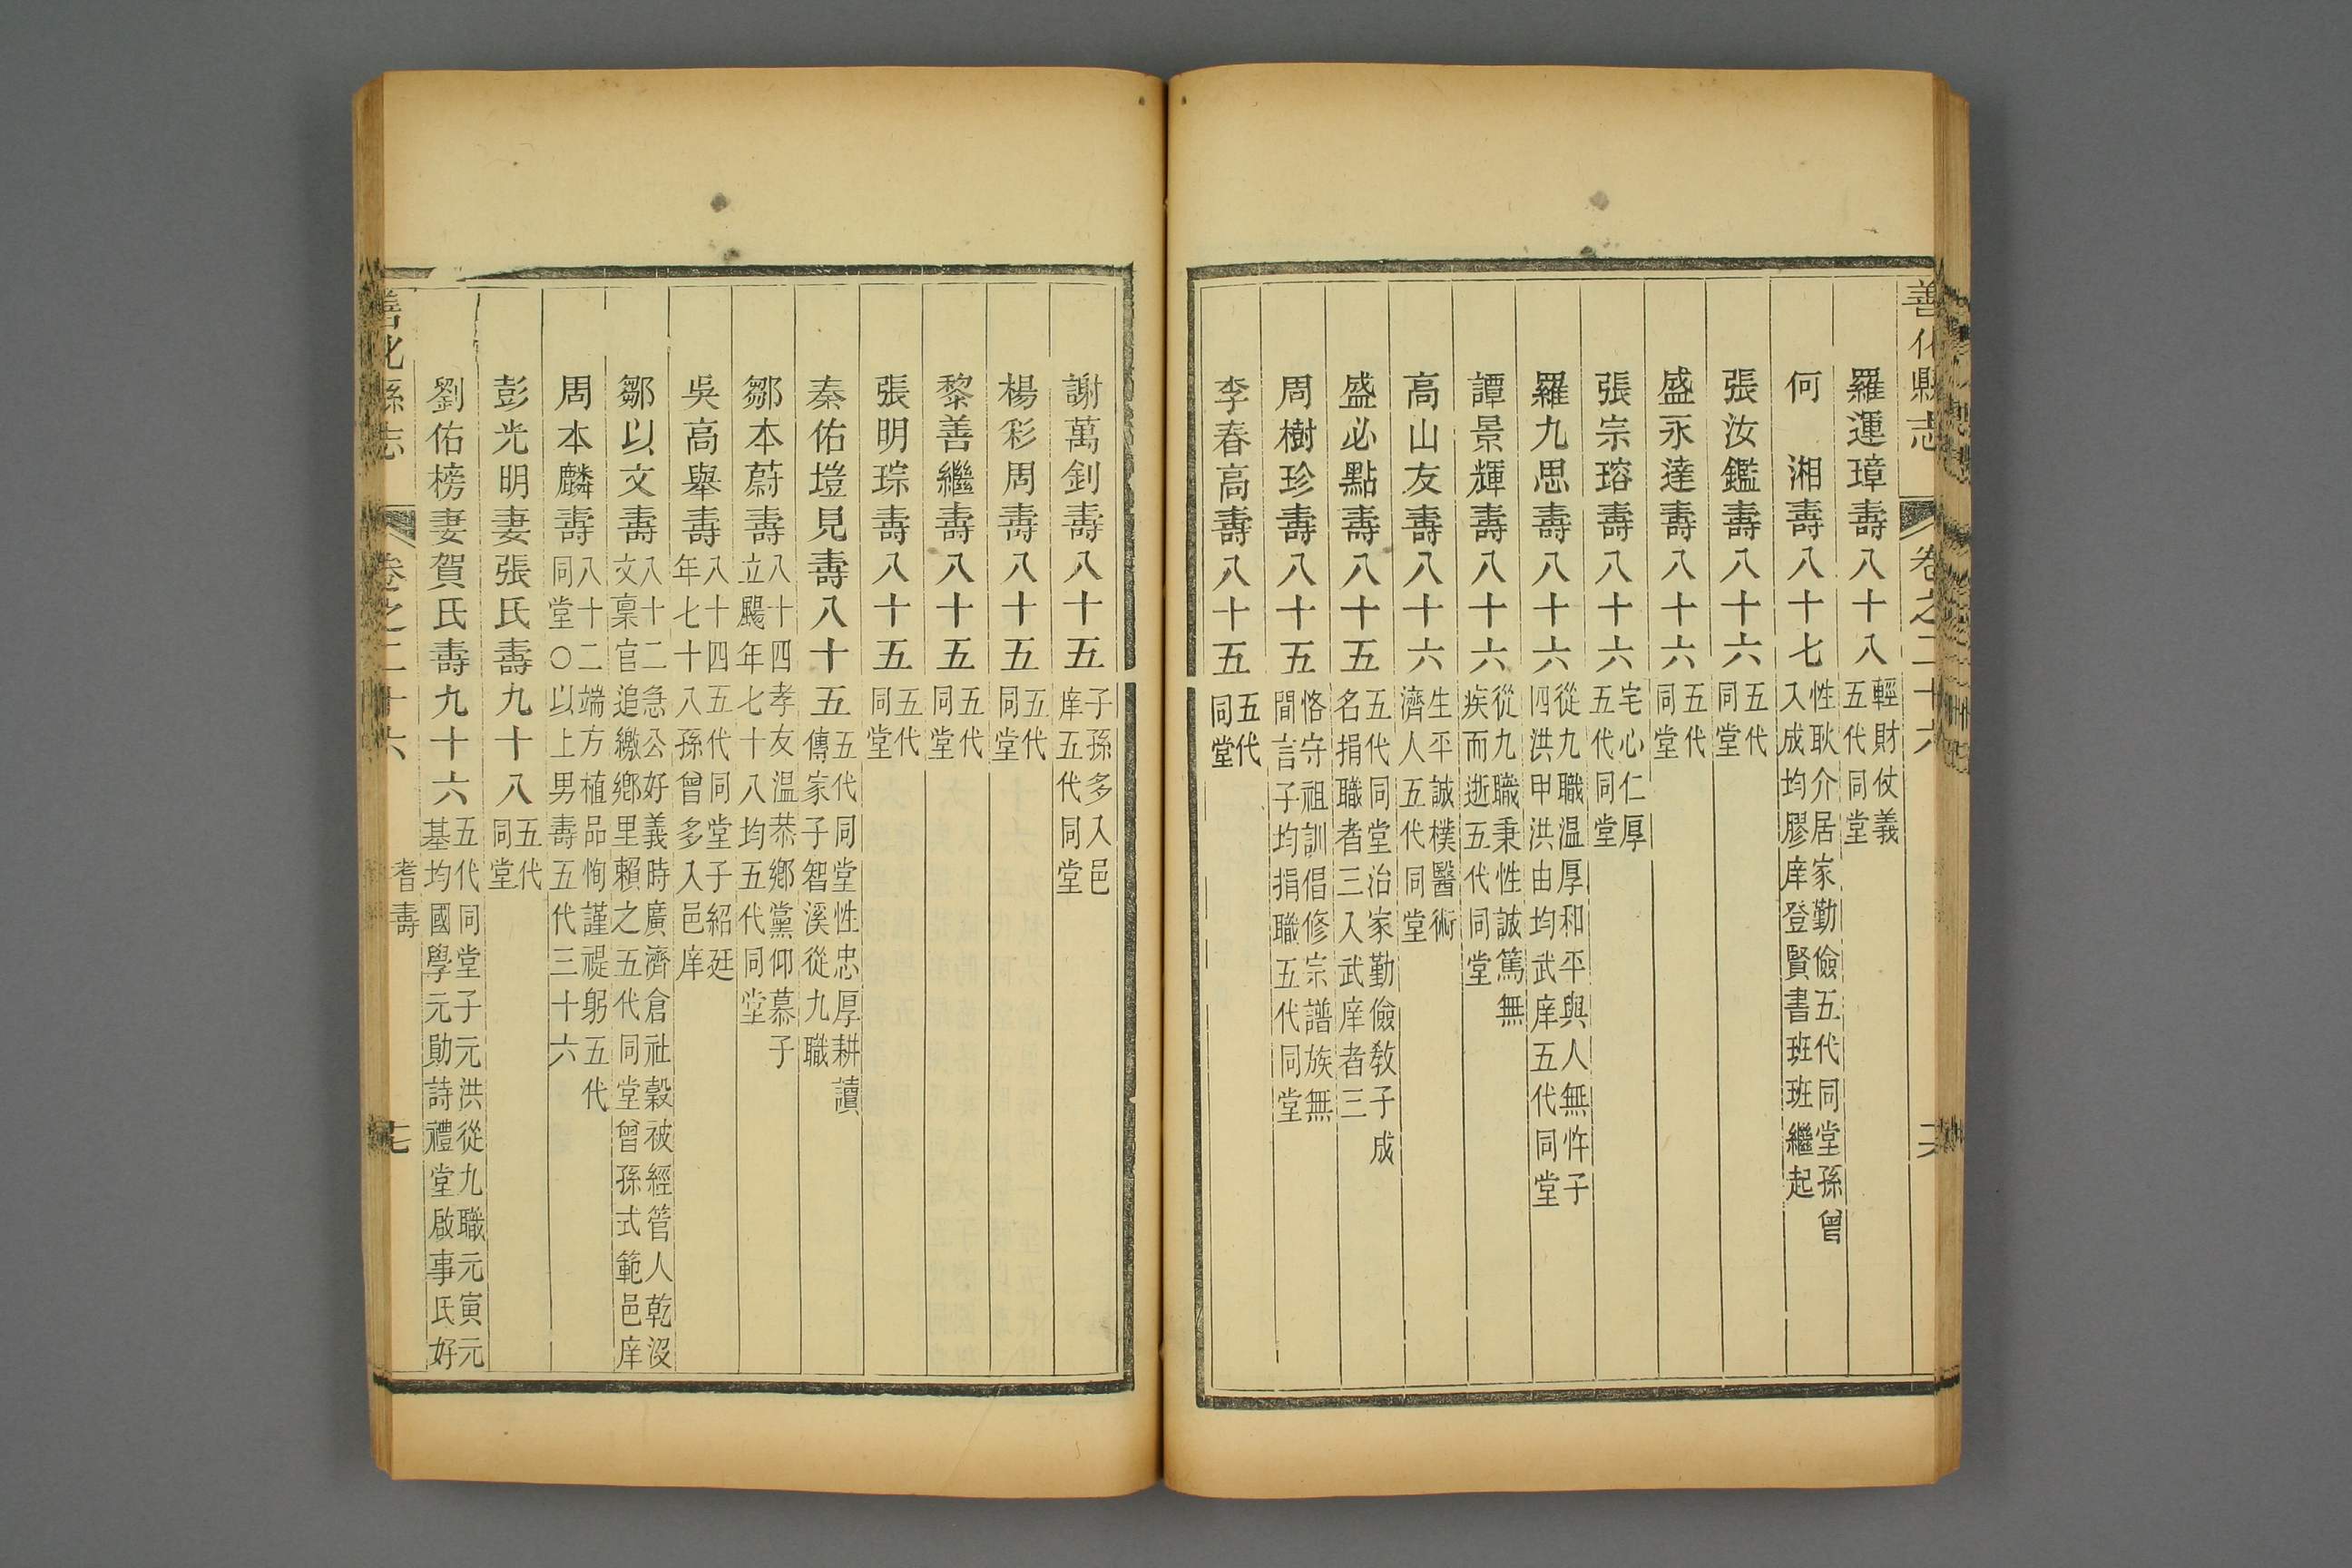 善化縣志 卷之二十六
羅運璋壽八十八 輕財仗義五代同堂
何 湘壽八十七 性耿介居家勤儉五代同堂孫曾入成均膠庠登賢書班班繼起
張汝鑑壽八十六 五代同堂
盛永達壽八十六 五代同堂
張宗瑢壽八十六 宅心仁厚五代同堂
羅九思壽八十六 從九職温厚和平與人無忤子四洪甲洪由均武庠五代同堂
譚景輝壽八十六 從九職秉性誠篤無疾而逝五代同堂
高山友壽八十六 生平誠樸醫術濟人五代同堂
盛必點壽八十五 五代同堂治家勤儉敎子成名捐職者三入武庠者三
周樹珍壽八十五 恪守祖訓倡修宗譜族無間言子均捐職五代同堂
李春高壽八十五 五代同堂
謝萬釗壽八十五 子孫多入邑庠五代同堂
楊彩周壽八十五 五代同堂
黎善繼壽八十五 五代同堂
張明琮壽八十五 五代同堂
秦佑塏見壽八十五 五代同堂性忠厚耕讀傳家子智溪從九職
鄒本蔚壽 八十四孝友温恭鄉黨仰慕子立颺年七十八均五代同堂
吳高舉壽 八十四五代同堂子紹廷年七十八孫曾多入邑庠
鄒以文壽 八十二急公好義時廣濟倉社穀被經管人乾沒文稟官追繳鄉里賴之五代同堂曾孫式範邑庠
周本麟壽 八十二端方植品恂謹禔躬五代同堂○以上男壽五代三十六
彭光明妻張氏壽九十八 五代同堂
劉佑榜妻賀氏壽九十六 五代同堂子元洪從九職元寅元基均國學元勛詩禮堂啟事氏好
善化縣志 卷之二十六 耆壽 十七